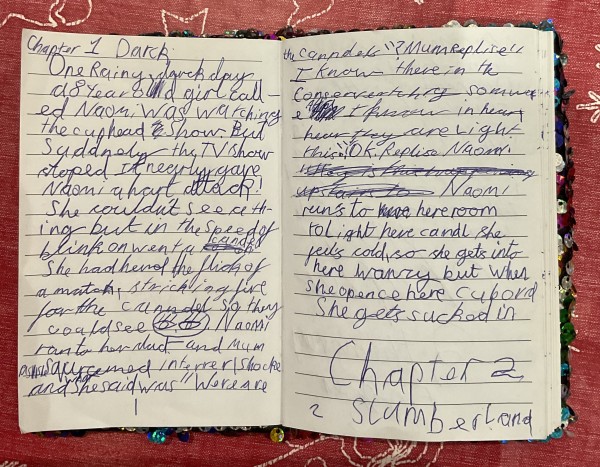 Chapter 1 Darck
One Rainy darck day
a 8 Year old girl call-
ed Naomi was warching
the cuphead Show. But
Suddnely the TV Show
stoped It nearly gave
Naomi a hart attack!
She couldn't see eth-
ing but in the speed of
blink on went a candel
She had herd the flick of
a match, striching fire
for the canndel so they
could see Naomi
ran to her dad and Mum
and said " Were are
1
the canndels"? Mum Replise"
I Know there in the
Conservertchry somwer
e I know in hear
hear they are Light
this" "OK Replise Naomi
Naomi
runs to here room
to Light here candl she
feils cold, so she gets into
here but when
she opence here cubord
She gets sucked in
Chapter 2
2 Slumberland